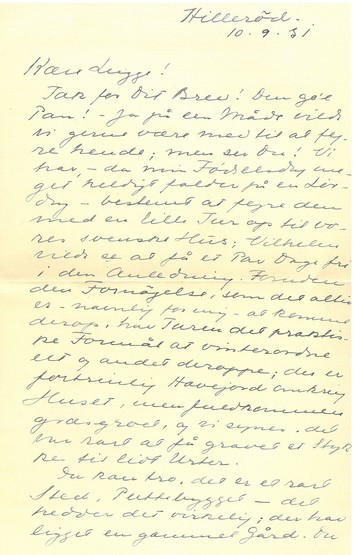 Hilleröd.
10.9.31
Kære Lugge!
Tak for Dit Brev! Den gode
Pan! – Ja på een Måde vilde
vi gerne være med til at fej-
re hende; men ser Du! Vi
har, – da min Fødselsdag me-
get heldigt falder på en Lør-
dag – bestemt at fejre den
med en lille Tur op til vo-
res svenske Hus; Vilhelm
vilde se at få et Par Dage fri
i den Anledning. Foruden
den Fornøjelse, som det altid
er – navnlig for mig – at komme
derop, har Turen det prakti-
ske Formål at vinterordne
eet og andet deroppe; der er
fortrinlig Havejord omkring
Huset, men fuldkommen
græsgroet, og vi synes, det
var rart at få gravet et Styk-
ke til lidt Urter.
Du kan tro, det er et rart
Sted, Puttebygget – det
hedder det virkelig; der har
ligget en gammel Gård. Du